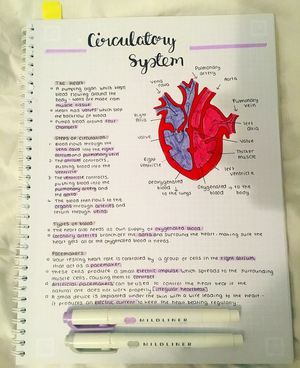 Circulatory
System
The Heart:
A pumping organ which keeps
blood flowing around the
body - walls are made from
muscle tissue
Heart has valves which stop
the backflow of blood
Pumps blood around four
chambers
Vena
cava
Pulmonary
artery
Aorta
Pulmonary
vein
Left
atria
Right
atria
Valve
Valve
Thicker
muscle
Right
ventricle
Left
ventricle
Deoxygenated
blood
to the lungs
Oxygenated
blood
to the
body
Steps of Circulation:
Blood flows through the
vena cava into the right
atrium and pulmonary vein
The atrium contracts,
pushing blood into the
ventricle
The ventricle contracts,
pushing blood into the
pulmonary artery and
the aorta
The blood then flows to the
organs through arteries and
return through veins
Types of blood:
The heart also needs its own supply of oxygenated blood
Coronary arteries branch off the aorta and surround the heart - making sure the
heart gets all of the oxygenated blood it needs
Pacemakers:
Your resting heart rate is controlled by a group of cells in the right atrium,
that act as a pacemaker
These cells produce a small electric impulse which spreads to the surrounding
muscle cells, causing them to contract
Artificial pacemakers can be used to control the heart beat if the
natural one does not work properly (irregular heartbeat)
A small device is implanted under the skin with a wire leading to the heart -
it produces an electric current to keep the heart beating regularly
MILDLINER
MILDLINER